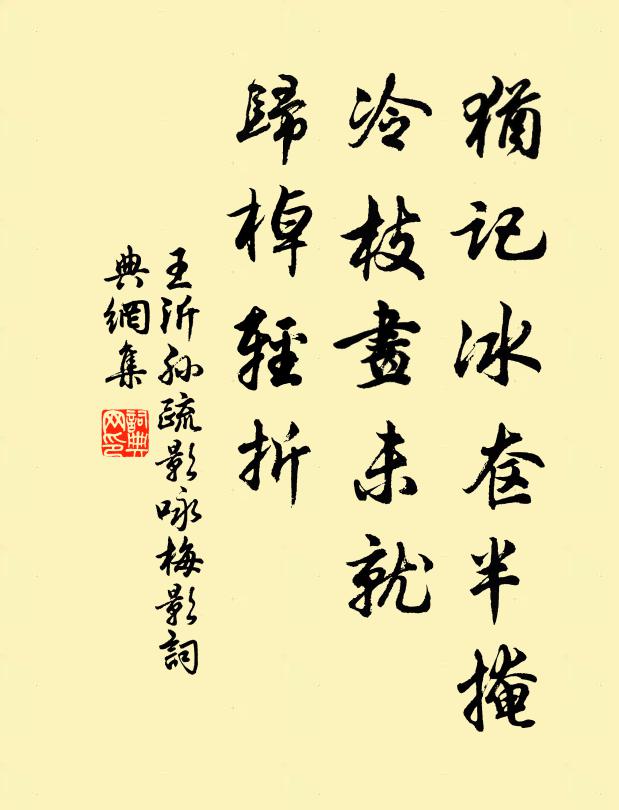 猶記冰奁半掩
冷枝畫未就
歸棹輕折
王沂孫疏影咏梅影詞
典網集
詞典网印